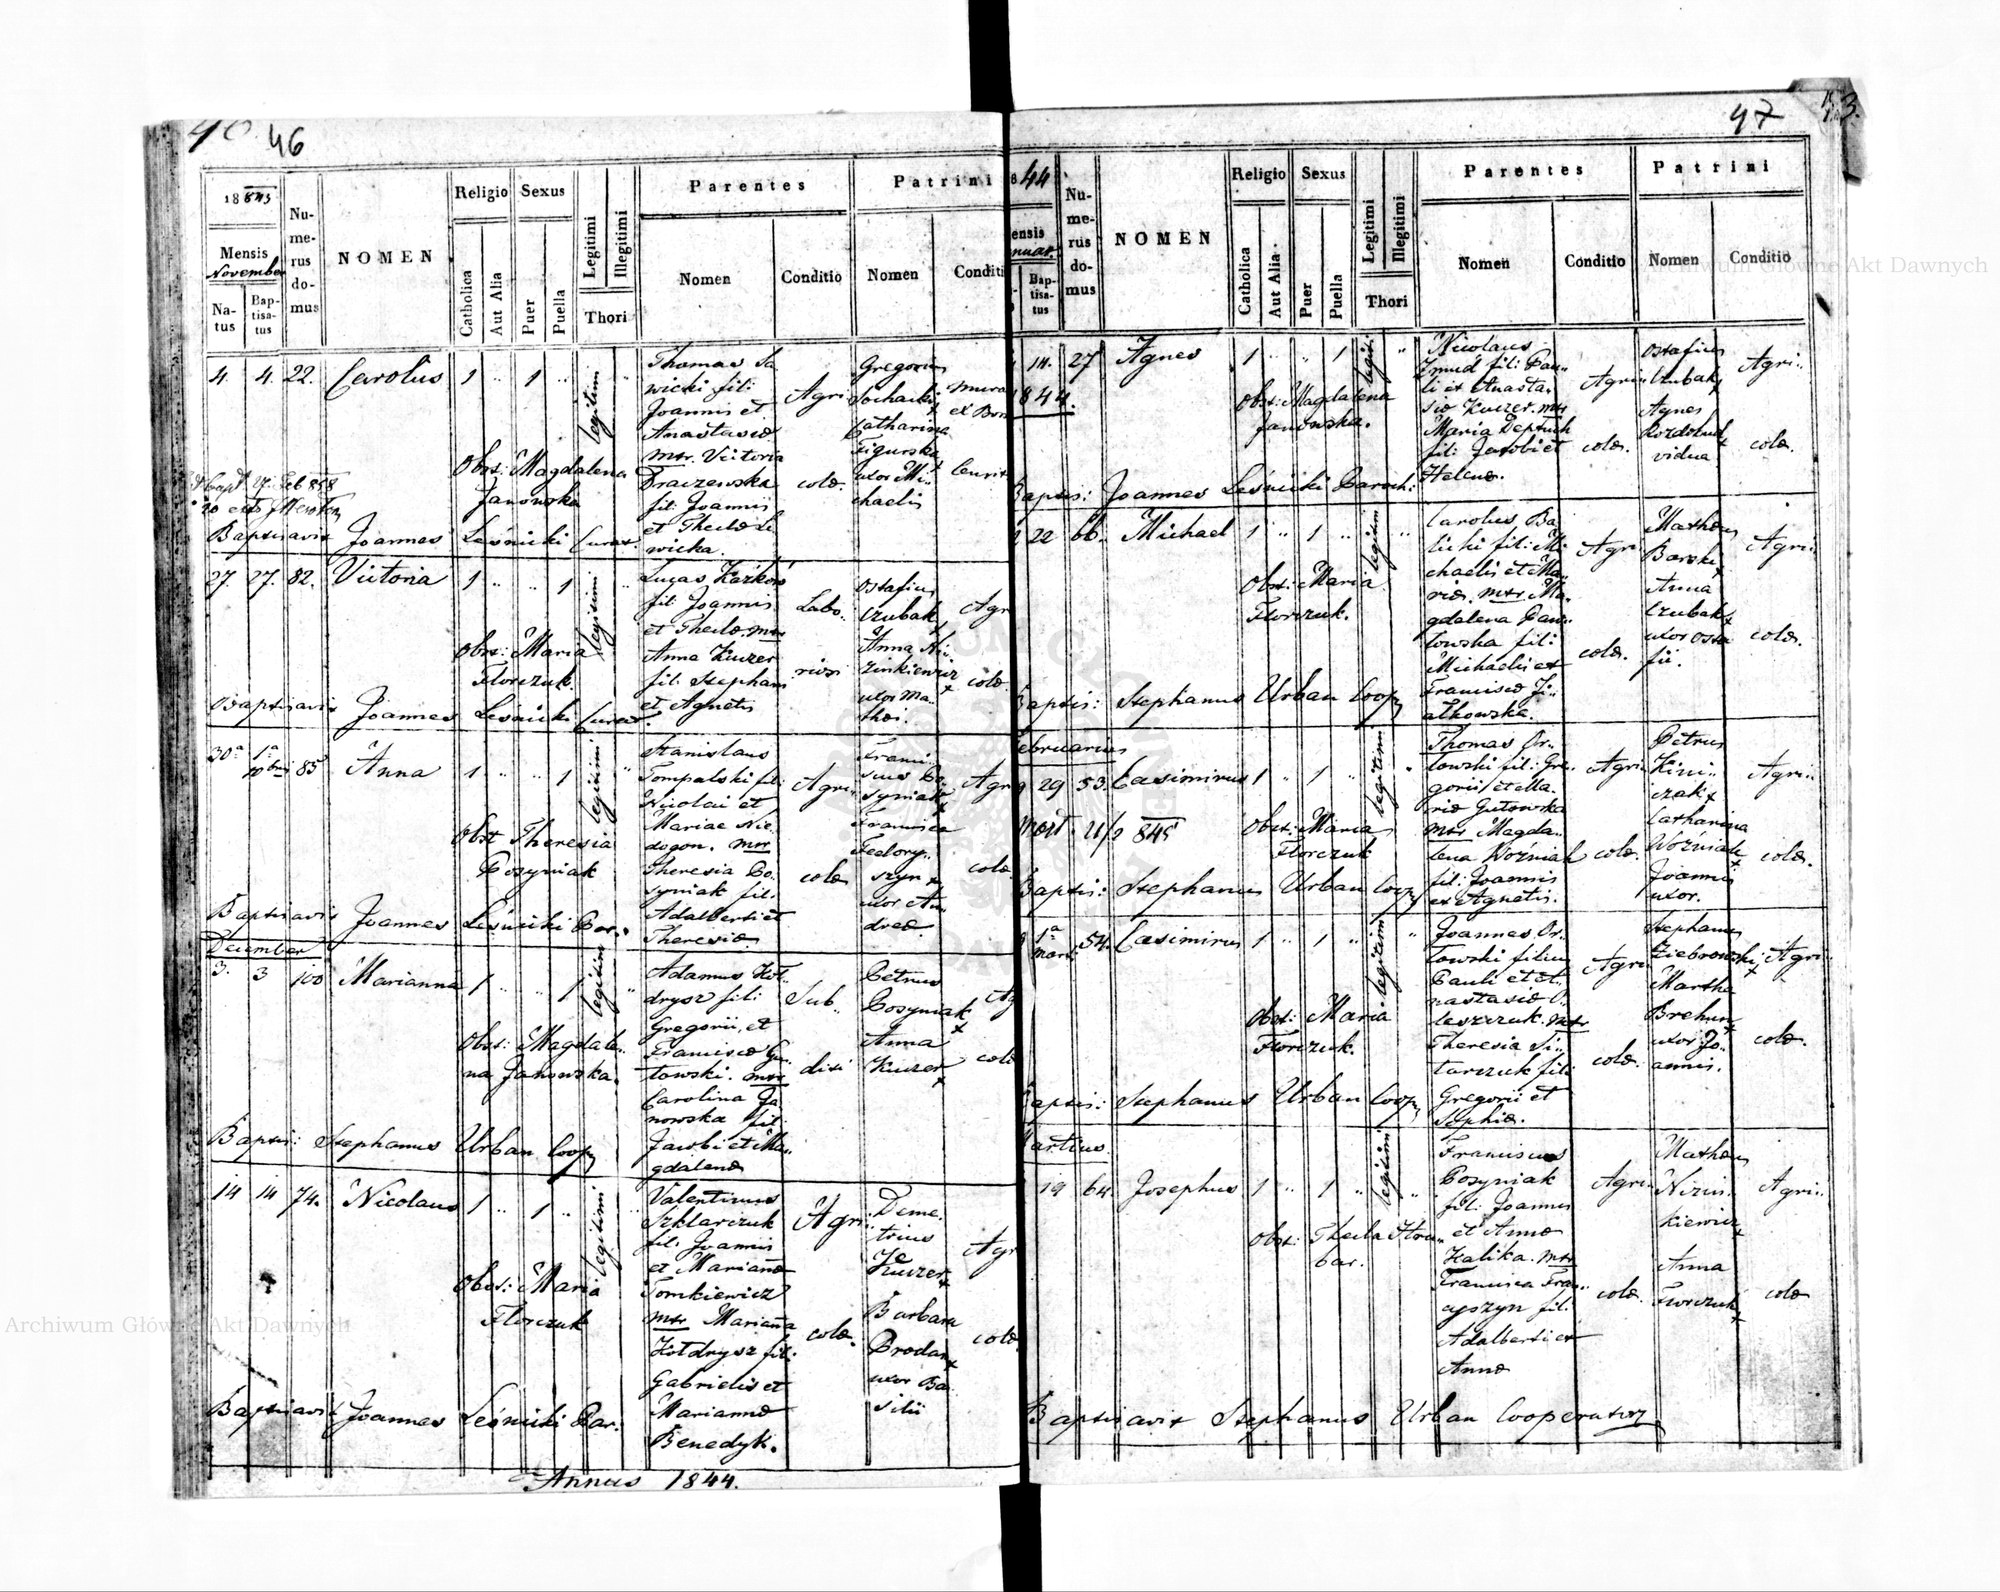 46
18 843
Mensis
November
Na-
tus
Bap-
tisa-
tus
Nu-
me-
rus
do-
mus
NOMEN
Religio
Catholica
Aut Alia
Sexus
Puer
Puella
Legitimi
Illegitimi
Thori
Parentes
Nomen
Conditio
Patrini
Nomen
Conditi
4. 4. 22. Carolus 1 " 1 "
legitimi
Thomas Sa
wicki fili
Joannis et
Anastasiæ
mtr. Victoria
Draczewska
fil: Joannis
et Theclæ Le
wicka.
Agri
colæ.
Gregorius
Sochacki
Catharina
Figurska
uxor Mi-
chaelis
Obst: Magdalena
Janowska
Baptisavit Joannes Leśnicki Curat.
27. 27. 82. Victoria 1 " " 1
legitimi
Lucas Kaźków
fil: Joannis
et Theclæ. mtr
Anna Kuczer
fil: Stephani
et Agnetis
Labo..
riosi
Ostafius
Czubak
Anna Ni-
zinkiewicz
uxor Ma-
thæi.
Agr
colæ.
Obst: Maria
Florczuk.
Baptisavit Joannes Leśnicki Curat.
30a 1a 10bris 85 Anna 1 " " 1
legitimi
Stanislaus
Tompalski fil:
Nicolai et
Mariae Nie
dogon. mtr
Theresia Po-
syniak fil.
Adalberti et
Theresiæ
Agri..
colæ
Franci-
scus Po-
syniak
Francisca
Fedory..
szyn
uxor An-
dreæ
Agr
colæ.
Obst Theresia
Posyniak
Baptisavit Joannes Leśnicki Par..
December
3. 3 100 Marianna 1 " " 1
legitimi
Adamus Koł-
drysz fili:
Gregorii, et
Franciscæ Gu-
towski. mtr
Carolina Ja
nowska fil:
Jacobi et Ma-
gdalenæ
Sub..
disi
Petrus
Posyniak
Anna
Kuczer
Ag
colæ
Obst: Magdale-
na Janowska.
Baptis: Stephanus Urban Coop
14 14 74. Nicolaus 1 " 1 "
legitimi
Valentinus
Szklarczuk
fil: Joannis
et Mariannæ
Tomkiewicz
mtr Marianna
Kołdrysz fil:
Gabrielis et
Mariannæ
Benedyk.
Agri..
colæ.
Deme-
trius
Kuczer
Barbara
Prodan
uxor Ba-
silii
Agr
colæ.
Obst: Maria
Florczuk
Baptisavit Joannes Leśnicki Par.
Annus 1844.
47
44
ensis
nuar.
Bap-
tisa-
tus
Nu-
me-
rus
do-
mus
NOMEN
Religio
Catholica
Aut Alia
Sexus
Puer
Puella
Legitimi
Illegitimi
Thori
Parentes
Nomen
Conditio
Patrini
Nomen
Conditio
14. 27 Agnes 1 " " 1
legiti.
844.
Nicolaus
Żmud fili: Pau-
li et Anasta-
siæ Kuczer. mtr
Maria Deptuch
fil: Jacobi et
Helenæ.
Agri
colæ.
Ostafius
Czubak
Agnes
Rozdolud
vidua
Agri..
colæ.
Obst: Magdalena
Janowska.
Baptis: Joannes Leśnicki Paroch:
22 66. Michael 1 " 1 "
legitimi
Carolus Ba
licki fili: Mi-
chaelis et Ma-
riæ. mtr Ma-
gdalena Paw-
łowska fil:
Michaelis et
Franciscæ Fi-
ałkowska.
Agri
colæ.
Matheus
Barski
Anna
Czubak
uxor Osta
fii.
Agri..
colæ.
Obst: Maria
Florczuk.
Baptis: Stephanus Urban Coop
Februarius
29 53. Casimirus 1 " 1 "
legitimi
Thomas Or..
łowski fil: Gre-
gorii et Ma-
riæ Gutowska
mtr Magda-
lena Woźniak
fil: Joannis
et Agnetis.
Agri
colæ.
Petrus
Kini-
czak
Catharina
Woźniak
Joannis
uxor.
Agri..
colæ.
Mort. 11/2 845
Obst: Maria
Florczuk
Baptis: Stephanus Urban Coop
1a mart. 54. Casimirus 1 " 1 "
legitimi
Joannes Or-
łowski filius
Pauli et A-
nastasiæ O-
leszczuk. mtr
Theresia Si-
tarczuk fil:
Gregorii et
Sophiæ.
Agri
colæ.
Stephanus
Ziebrowski
Martha
Brehun
uxor Jo-
annis.
Agri..
colæ.
Obst: Maria
Florczuk.
Baptis: Stephanus Urban Coop
Martius.
19 64. Josephus 1 " 1 "
legitimi
Franciscus
Posyniak
fil: Joannis
et Annæ
Kalika. mtr
Francisca Fran-
fil:
Adalberti et
Annæ
Agri..
colæ.
Matheus
Nizin-
kiewicz
Anna
Florczuk
Agri..
colæ
Obst: Thecla Hru-
bar.
Baptisavit Stephanus Urban Cooperator
Archiwum Główne Akt Dawnych
Archiwum Główne Akt Dawnych